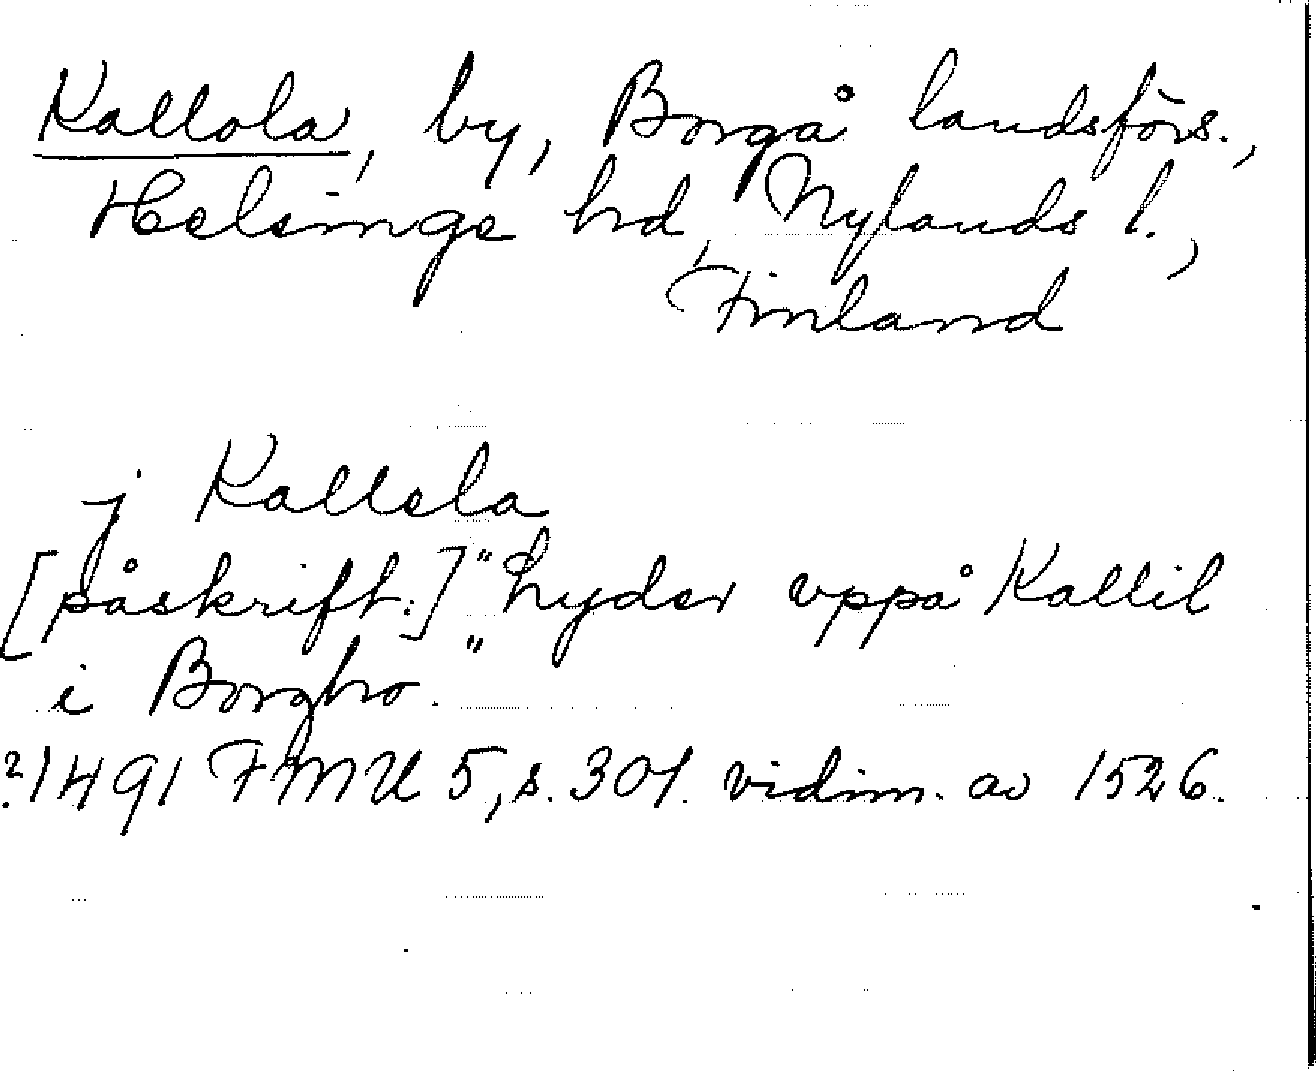 Kallola, by, Borgå landsförs.,
Helsinge hd, Nylands l.,
Finland
j Kallela
[påskrift:] "Lyder vppå Kallil
i Borgho."
?1491 FMU 5, s. 301. vidim. av 1526.